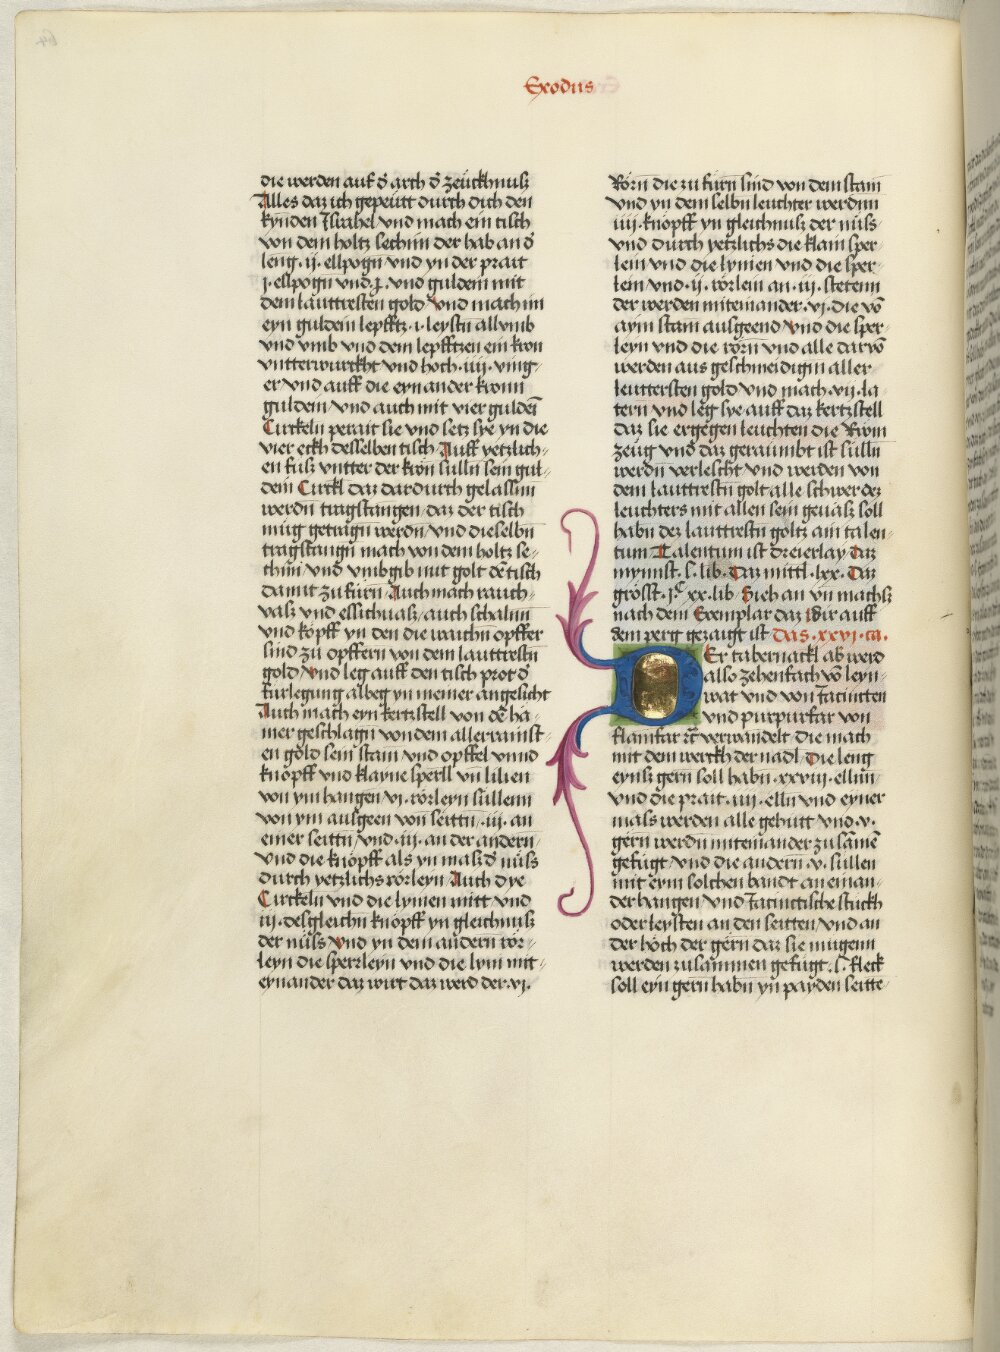 Exodus
die werden auf d̕ arch d̕ zeuckhnusz
Alles daz ich gepeütt durch dich den
kynden Israhel vnd mach ein tisch
von dem holtz sechim der hab an d̕
leng .ij. ellpogn vnd yn der prait
j. ellpogn vnd .j. vnd guldein mit
dem lauttresten gold vnd mach im
eyn guldein lepfftz .i. leystn allvmb
vnd vmb vnd dem lepfftzen ein kron
vntterwurckht vnd hoch .iiij. ving⸗
er vnd auff die eyn ander kronn
guldein vnd auch mit vier guldeī
Circkeln perait sie vnd setz sye yn die
vier eckh desselben tisch Auff yetzlich⸗
en fusz vntter der kron sulln sein gul⸗
dein Circkl daz dardurch gelassnn
werdn tragstangen daz der tisch
müg getragn werdn vnd dieselbn
tragstangn mach von dem holtz se⸗
thim vnd vmbgib mit golt dē tisch
damit zu fürn Auch mach rauch⸗
vasz vnd essichuasz auch schalnn
vnd köpff yn den die waichn opffer
sind zu opffern von dem lauttrestn
gold vnd leg auff den tisch prot d̕
fürlegung albeg yn meiner angesicht
Auch mach eyn kertzstell von dē ha⸗
mer geschlagn von dem allerrainist⸗
en gold sein stam vnd opffel vnnd
knöpff vnd klayne sperll vn̄ lilien
von ym hangen vi. rörleyn sullenn
von ym ausgeen von seittn .iij. an
einer seittn vnd .iij. an der andern
vnd die knöpff als yn masz d̕ nüss
durch yetzlichs rörleyn Auch dye
Circkeln vnd die lynien mitt vnd
iij. desgleichn knöpff yn gleichnusz
der nüss vnd yn dem andern rör⸗
leyn die sperrleyn vnd die lyni mit⸗
eynander daz wirt daz werd der .vj.
Rörn die zu fürn sind von dem stam
vnd yn dem selbn leuchter werdnn
iiij. knöpff yn gleichnusz der nüss
vnd durch yetzlichs die klain sper⸗
lein vnd die lynien vnd die sper⸗
lein vnd .ij. rörlein an .iij. stetenn
der werden miteinander .vj. die vō
aym stam ausgeend vnd die sper⸗
leyn vnd die rörn vnd alle darvō
werden aus geschmeidigin aller
leuttersten gold vnd mach .vij. la⸗
tern vnd leg sye auff daz kertzstell
daz sie ergegen leuchten die Rörn
zeug vnd daz geraumbt ist sülln
werdn verlescht vnd werden von
dem lauttrestn golt alle schwer dez
leuchters mit allen sein geuasz soll
habn dez lauttrestn goltz ain talen⸗
tum Talentum ist dreierlay Daz
mynnst .l. lib. Daz mittl .lxx. Daz
grösst .jᶜ xx. lib Sieh an vn̄ machsz
nach dem Exemplar daz Dir auff
dem perg gezaigt ist Das .xxvj. ca.
DEr tabernackl ab werd
also zehenfach vō leyn⸗
wat vnd von Jacintten
vnd purpurfar von
flamfar ꝛc verwandelt die mach
mit dem werckh der nadl Die leng
eynsz gern soll habn .xxviij. ellnn
vnd die prait .iiij. elln vnd eyner
mass werden alle gehutt vnd .v.
gern werdn miteinander zusāmē
gefügt vnd die andern .v. sullen
mit eym solchen bandt an einan⸗
der hangen vnd Jacinctische stückh
oder leysten an den seitten vnd an
der höch der gern daz sie mugenn
werden zusammen gefügt .l. fleck
soll eyn gern habn yn payden seitte